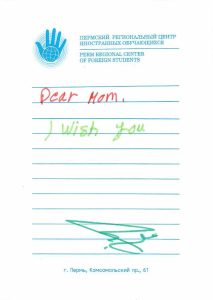 ПЕРМСКИЙ РЕГИОНАЛЬНЫЙ ЦЕНТР
ИНОСТРАННЫХ ОБУЧАЮЩИХСЯ
PERM REGIONAL CENTER
OF FOREIGN STUDENTS
Dear Mom.
I Wish you
г. Пермь, Комсомольский пр., 61